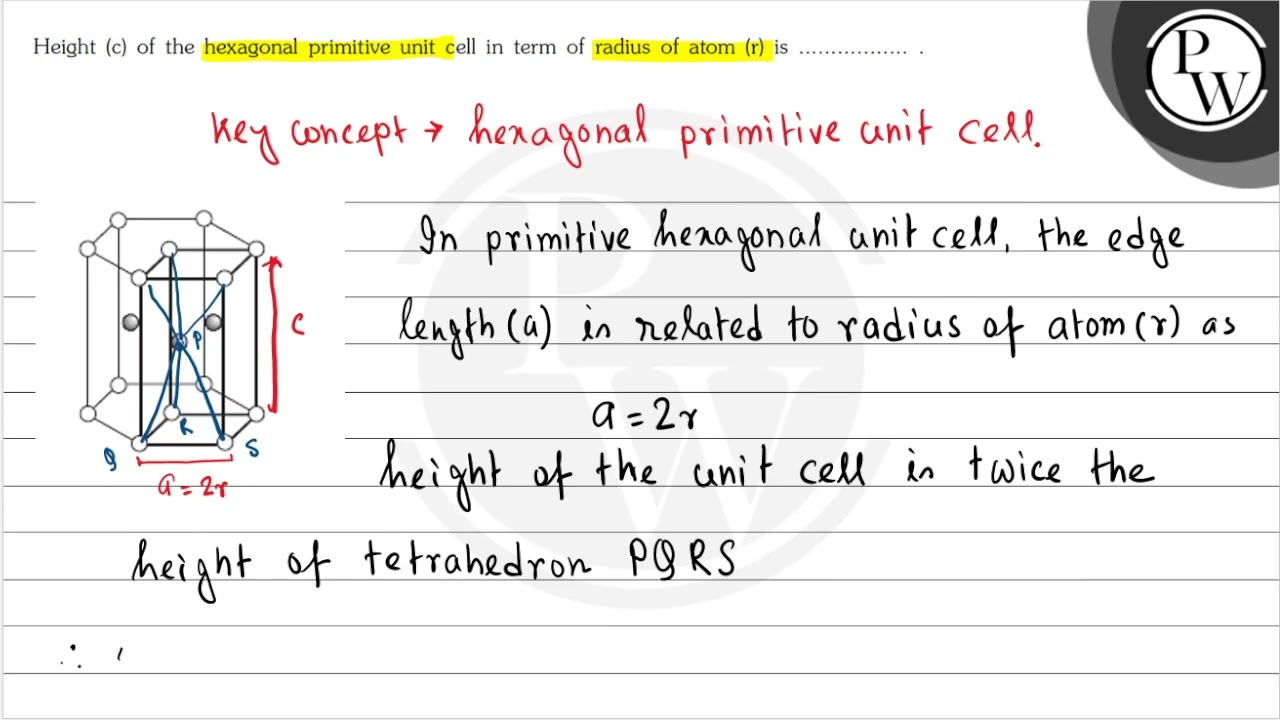 Height (c) of the hexagonal primitive unit cell in term of radius of atom (r) is ................. .
PW
Key concept → hexagonal primitive unit cell.
In primitive hexagonal unit cell, the edge
length (a) is related to radius of atom (r) as
a = 2r
height of the unit cell is twice the
height of tetrahedron PQRS
∴
P
C
R
Q
S
a = 2r